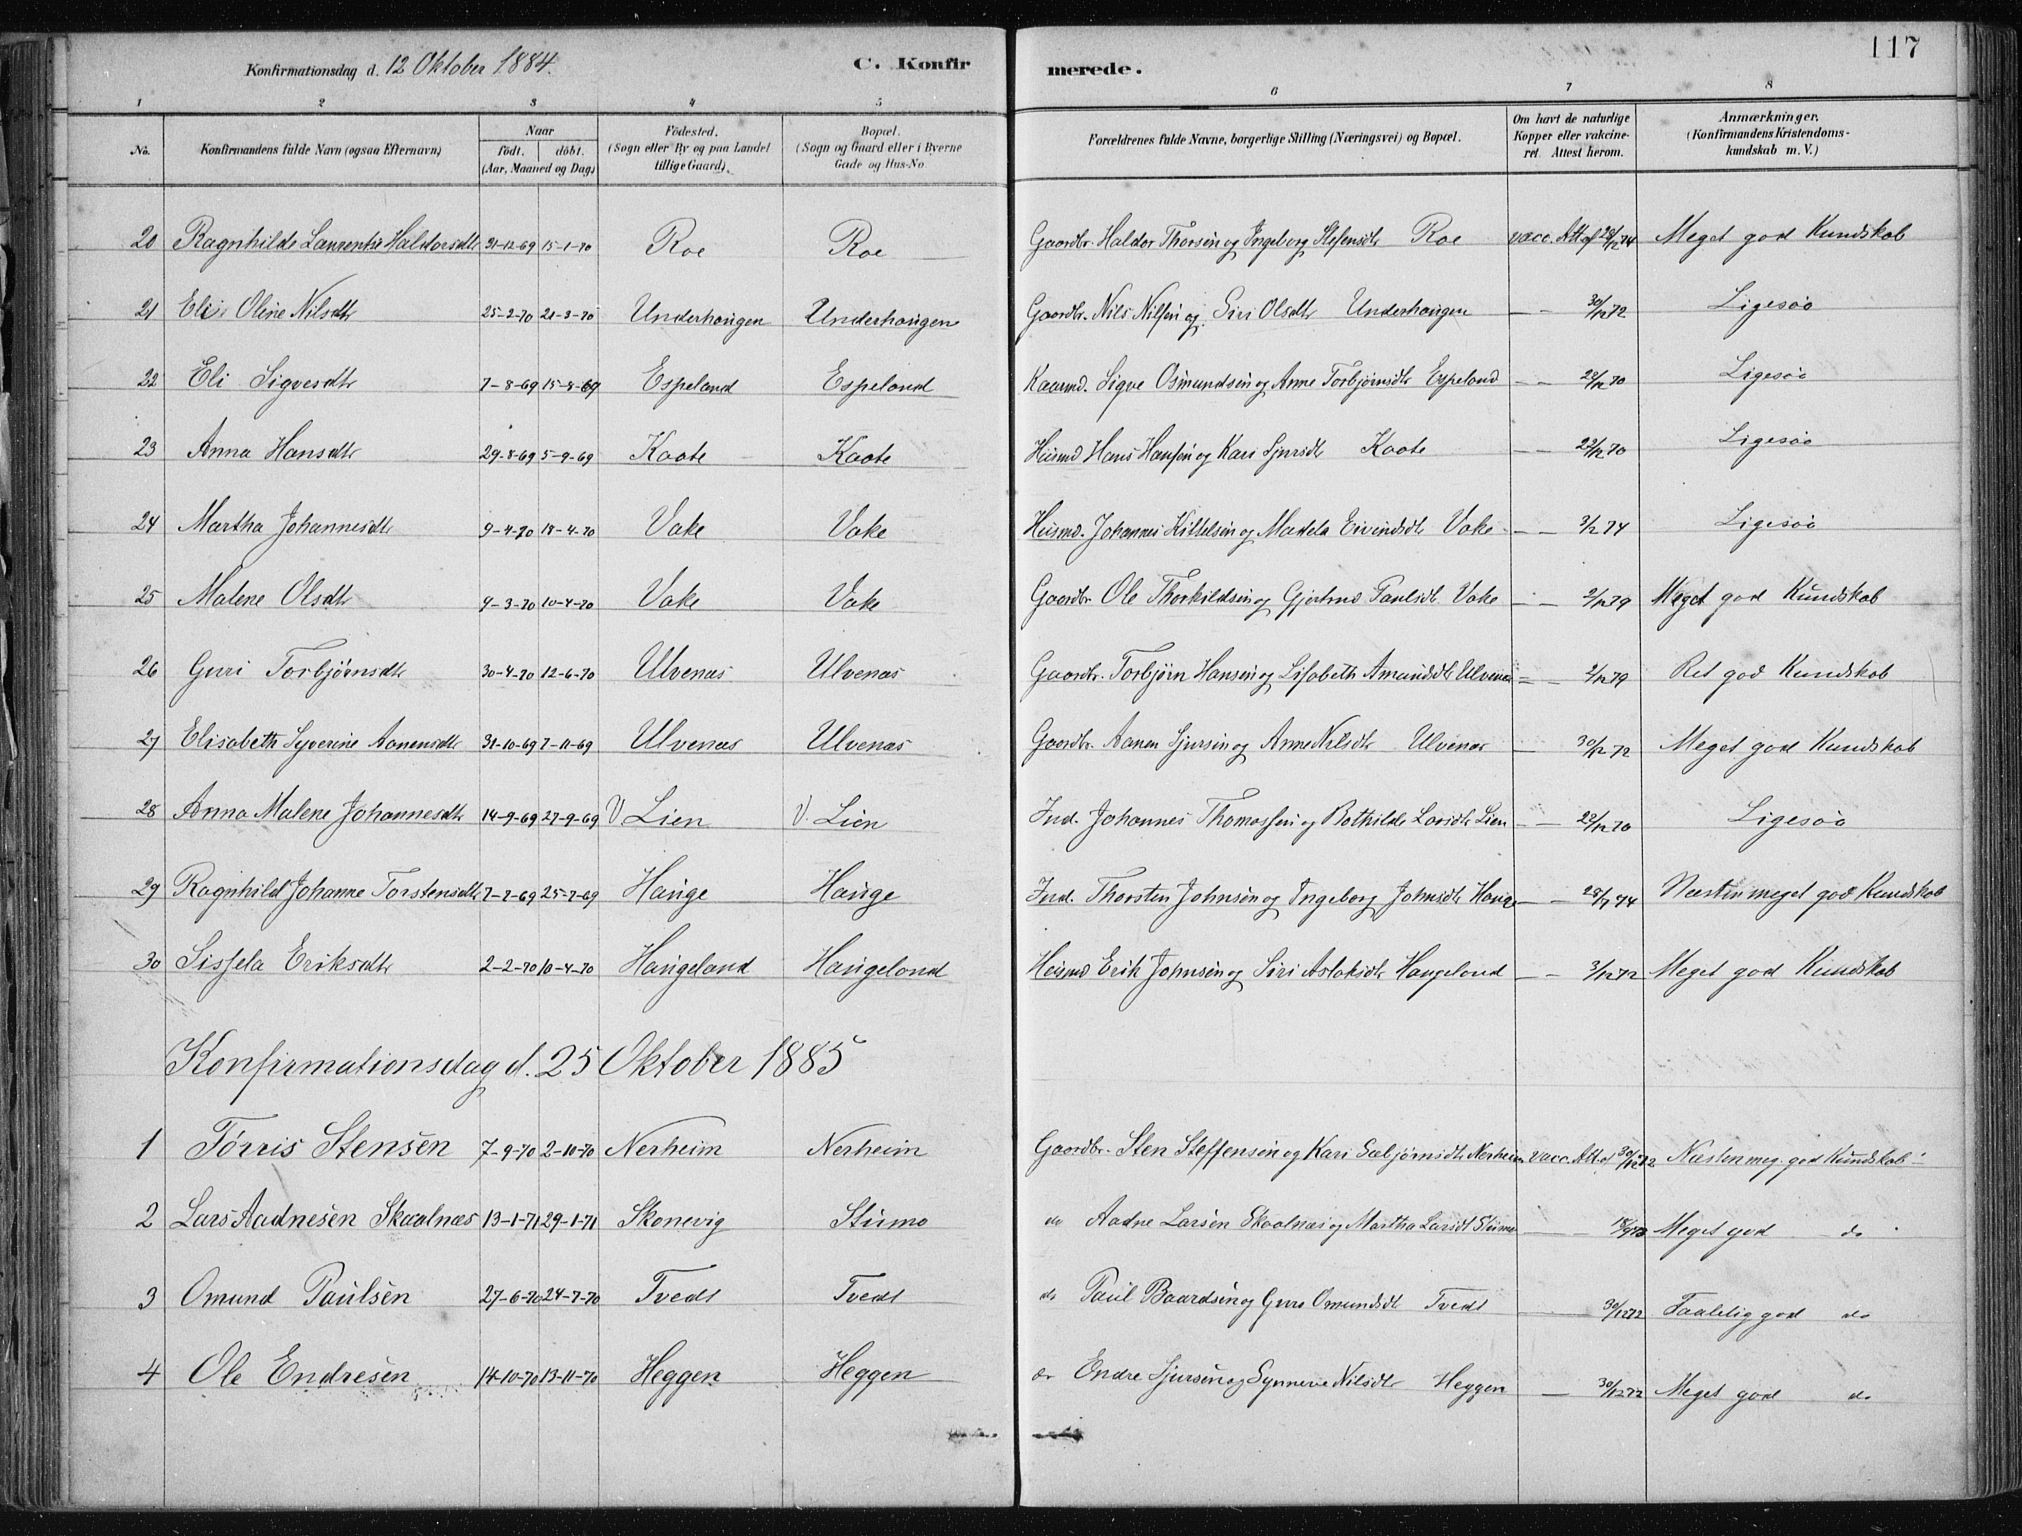 Konfirmationsdag d. 12 Oktober 1884.
C. Konfirmerede.
117
1 2 3 4 5 6 7 8
No. Konfirmandens fulde Navn (ogsaa Efternavn). Naar födt. döbt. (Aar, Maaned og Dag) Födested. (Sogn eller By og paa Landet tillige Gaard). Bopæl. (Sogn og Gaard eller i Byerne Gade og Hus-No. Forældrenes fulde Navne, borgerlige Stilling (Næringsvei) og Bopæl. Om havt de naturlige Kopper eller vakcineret. Attest herom. Anmærkninger. (Konfirmandens Kristendomskundskab m. V.)
20 Ragnhilde Laurentse Haldorsdtr 31-12-69 15-1-70 Roe Roe Gaardbr. Haldor Thorsen og Ingeborg Stefensdtr Roe vacc. Att. af 28/12 74 Meget god Kundskab
21 Eli Oline Nilsdtr 25-2-70 21-3-70 Underhaugen Underhaugen Gaardbr. Nils Nilsen og Siri Olsdtr Underhaugen — — 30/12 72 Ligesaa
22 Eli Sigvesdtr 7-8-69 15-8-69 Espeland Espeland Kaarmd. Sigve Osmundsen og Anne Torbjörnsdtr Espeland — — 28/12 70 Ligesaa
23 Anna Hansdtr 29-8-69 5-9-69 Kaate Kaate Husmd Hans Hansen og Kari Sjursdtr Kaate — — 22/12 70 Ligesaa
24 Martha Johannesdtr 9-4-70 18-4-70 Vake Vake Husmd. Johannes Kittelsen og Madela Eivindsdtr Vake — — 3/12 74 Ligesaa
25 Malene Olsdtr 9-3-70 10-4-70 Vake Vake Gaardbr Ole Thorkildsen og Gjertrud Paulsdtr Vake — — 2/12 79 Meget god Kundskab
26 Guri Torbjørnsdtr 30-4-70 12-6-70 Ulvenæs Ulvenæs Gaardbr. Torbjørn Hansen og Lisabeth Amundsdtr Ulvenæs — — 2/12 79 Ret god Kundskab
27 Elisabeth Syverine Aanensdtr 31-10-69 7-11-69 Ulvenæs Ulvenæs Gaardbr. Aanen Sjursen og Anne Nilsdtr Ulvenæs — 30/12 72 Meget god Kundskab
28 Anna Malene Johannesdtr 14-9-69 27-9-69 V Lien V. Lien Ind. Johannes Thomassen og Bothilde Larsdtr Lien — — 28/12 70 Ligesaa
29 Ragnhild Johanne Torstensdtr 7-7-69 25-7-69 Hauge Hauge Ind. Thorsten Johnsen og Ingeborg Johnsdtr Hauge — — 28/7 74 Næsten meget god Kundskab
30 Sissela Eriksdtr 2-2-70 10-4-70 Haugeland Haugeland Husmd Erik Johnsen og Siri Aslaksdtr Haugeland — — 3/12 72 Meget god Kundskab
Konfirmationsdag d. 25 Oktober 1885
1 Tørris Stensen 7-9-70 2-10-70 Nerheim Nerheim Gaardbr. Sten Steffensen og Kari Sæbjørnsdtr Nerheim vacc. Att. af 30/12 72 Næsten meg. god Kundskab
2 Lars Aadnesen Skaalnæs 13-1-71 29-1-71 Skonevig Stumo do Aadne Larsen Skaalnæs og Martha Larsdt Stumo — Meget god do
3 Omund Paulsen 27-6-70 24-7-70 Tvedt Tvedt do Paul Baardsen og Guro Omundsdt Tvedt — 30/12 72 Taalelig god do
4 Ole Endresen 14-10-70 13-11-70 Heggen Heggen do Endre Sjursen og Synneve Nilsdtr Heggen — 30/12 72 Meget god do